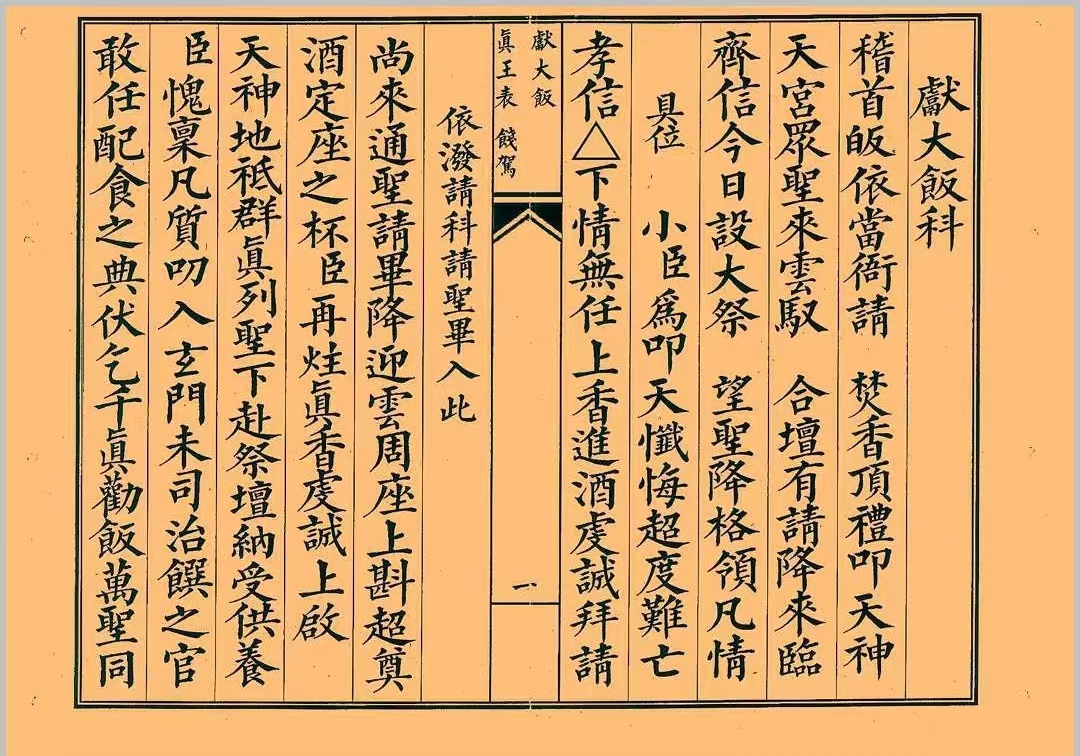 獻大飯科
稽首皈依當衙請 焚香頂禮叩天神
天宮眾聖來雲馭 合壇有請降來臨
齊信今日設大祭 望聖降格領凡情
具位 小臣爲叩天懺悔超度難亡
孝信△下情無任上香進酒虔誠拜請
獻大飯
眞王表 餞駕
一
依潑請科請聖畢入此
尚來通聖請畢降迎雲周座上斟超奠
酒定座之杯臣再炷眞香虔誠上啟
天神地祇群眞列聖下赴祭壇納受供養
臣愧稟凡質叨入玄門未司治饌之官
敢任配食之典伏乞千眞勸飯萬聖同